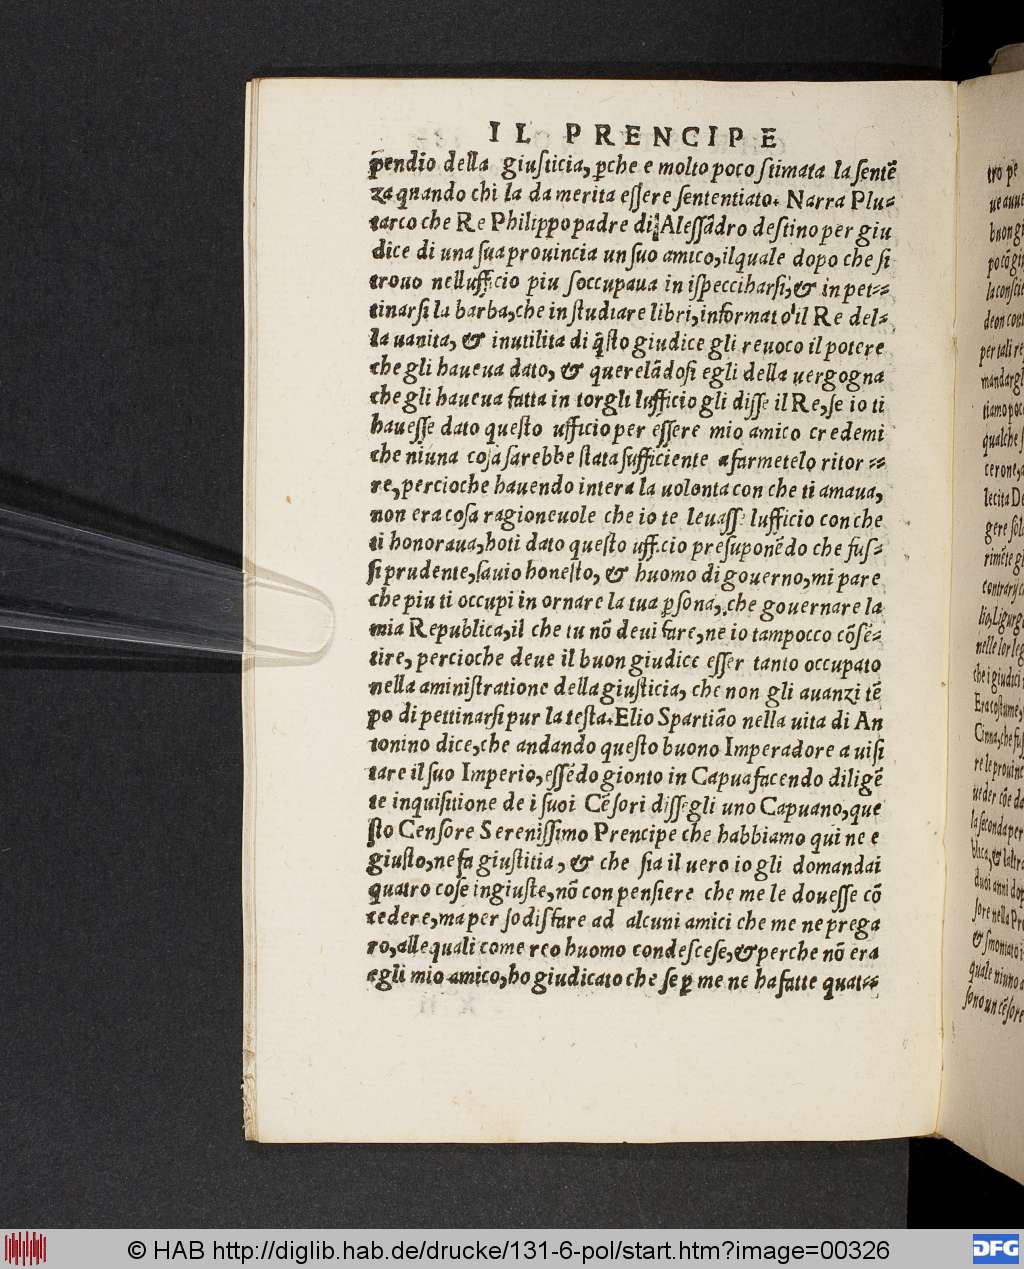 IL PRENCIPE
p̄endio della giuſticia, ꝑche e molto poco ſtimata la ſentē
za qnando chi la da merita eſſere ſententiato. Narra Plu-
tarco che Re Philippo padre di Aleſſādro deſtino per giu
dice di una ſua prouincia un ſuo amico, ilquale dopo che ſi
trouo nell ufficio piu ſoccupaua in iſpecciharſi, & in pet-
tinarſi la barba, che in ſtudiare libri, informato il Re del-
la uanita, & inutilita di q̄ſto giudice gli reuoco il potere
che gli haueua dato, & querelādoſi egli della uergogna
che gli haueua fatta in torgli lufficio gli diſſe il Re, ſe io ti
haueſſe dato queſto ufficio per eſſere mio amico credemi
che niuna coſa ſarebbe ſtata ſufficiente a farmetelo ritor-
re, percioche hauendo intera la uolonta con che ti amaua,
non era coſa ragioneuole che io te leuaſſe lufficio con che
ti honoraua, hoti dato queſto ufficio preſuponēdo che fuſ-
ſi prudente, ſauio honeſto, & huomo di gouerno, mi pare
che piu ti occupi in ornare la tua ꝑſona, che gouernare la
mia Republica, il che tu nō deui fare, ne io tampocco cōſē-
tire, percioche deue il buon giudice eſſer tanto occupato
nella aminiſtratione della giuſticia, che non gli auanzi tē
po di pettinarſi pur la teſta. Elio Spartiāo nella uita di An
tonino dice, che andando queſto buono Imperadore a uiſi
tare il ſuo Imperio, eſſēdo gionto in Capua facendo diligē
te inquiſitione de i ſuoi Cēſori diſſegli uno Capuano, que
ſto Cenſore Sereniſſimo Prencipe che habbiamo qui ne e
giuſto, ne fa giuſtitia, & che ſia il uero io gli domandai
quatro coſe ingiuſte, nō con penſiere che me le doueſſe cō
cedere, ma per ſodisfare ad alcuni amici che me ne prega
ro, alle quali come reo huomo condeſceſe, & perche nō era
egli mio amico, ho giudicato che ſe ꝑ me ne ha fatte quat-
tro pe
ue auue
buon gi
la conſcie
per tali re
mandargl
tiamo poco
qualche ſ
cerone, a
lecita De
gere ſolo
rimēte gl
contrarij c
lio, Ligurgo
nelle lor leg
che i giudici
Era coſtume,
Cinna, che fuſ
re le prouinc
la ſeconda per
blica, & laltra
duoi anni dop
ſore nella Pro
& ſmontato i
quale niuno a
ſono un cēſore
© HAB http://diglib.hab.de/drucke/131-6-pol/start.htm?image=00326
DFG